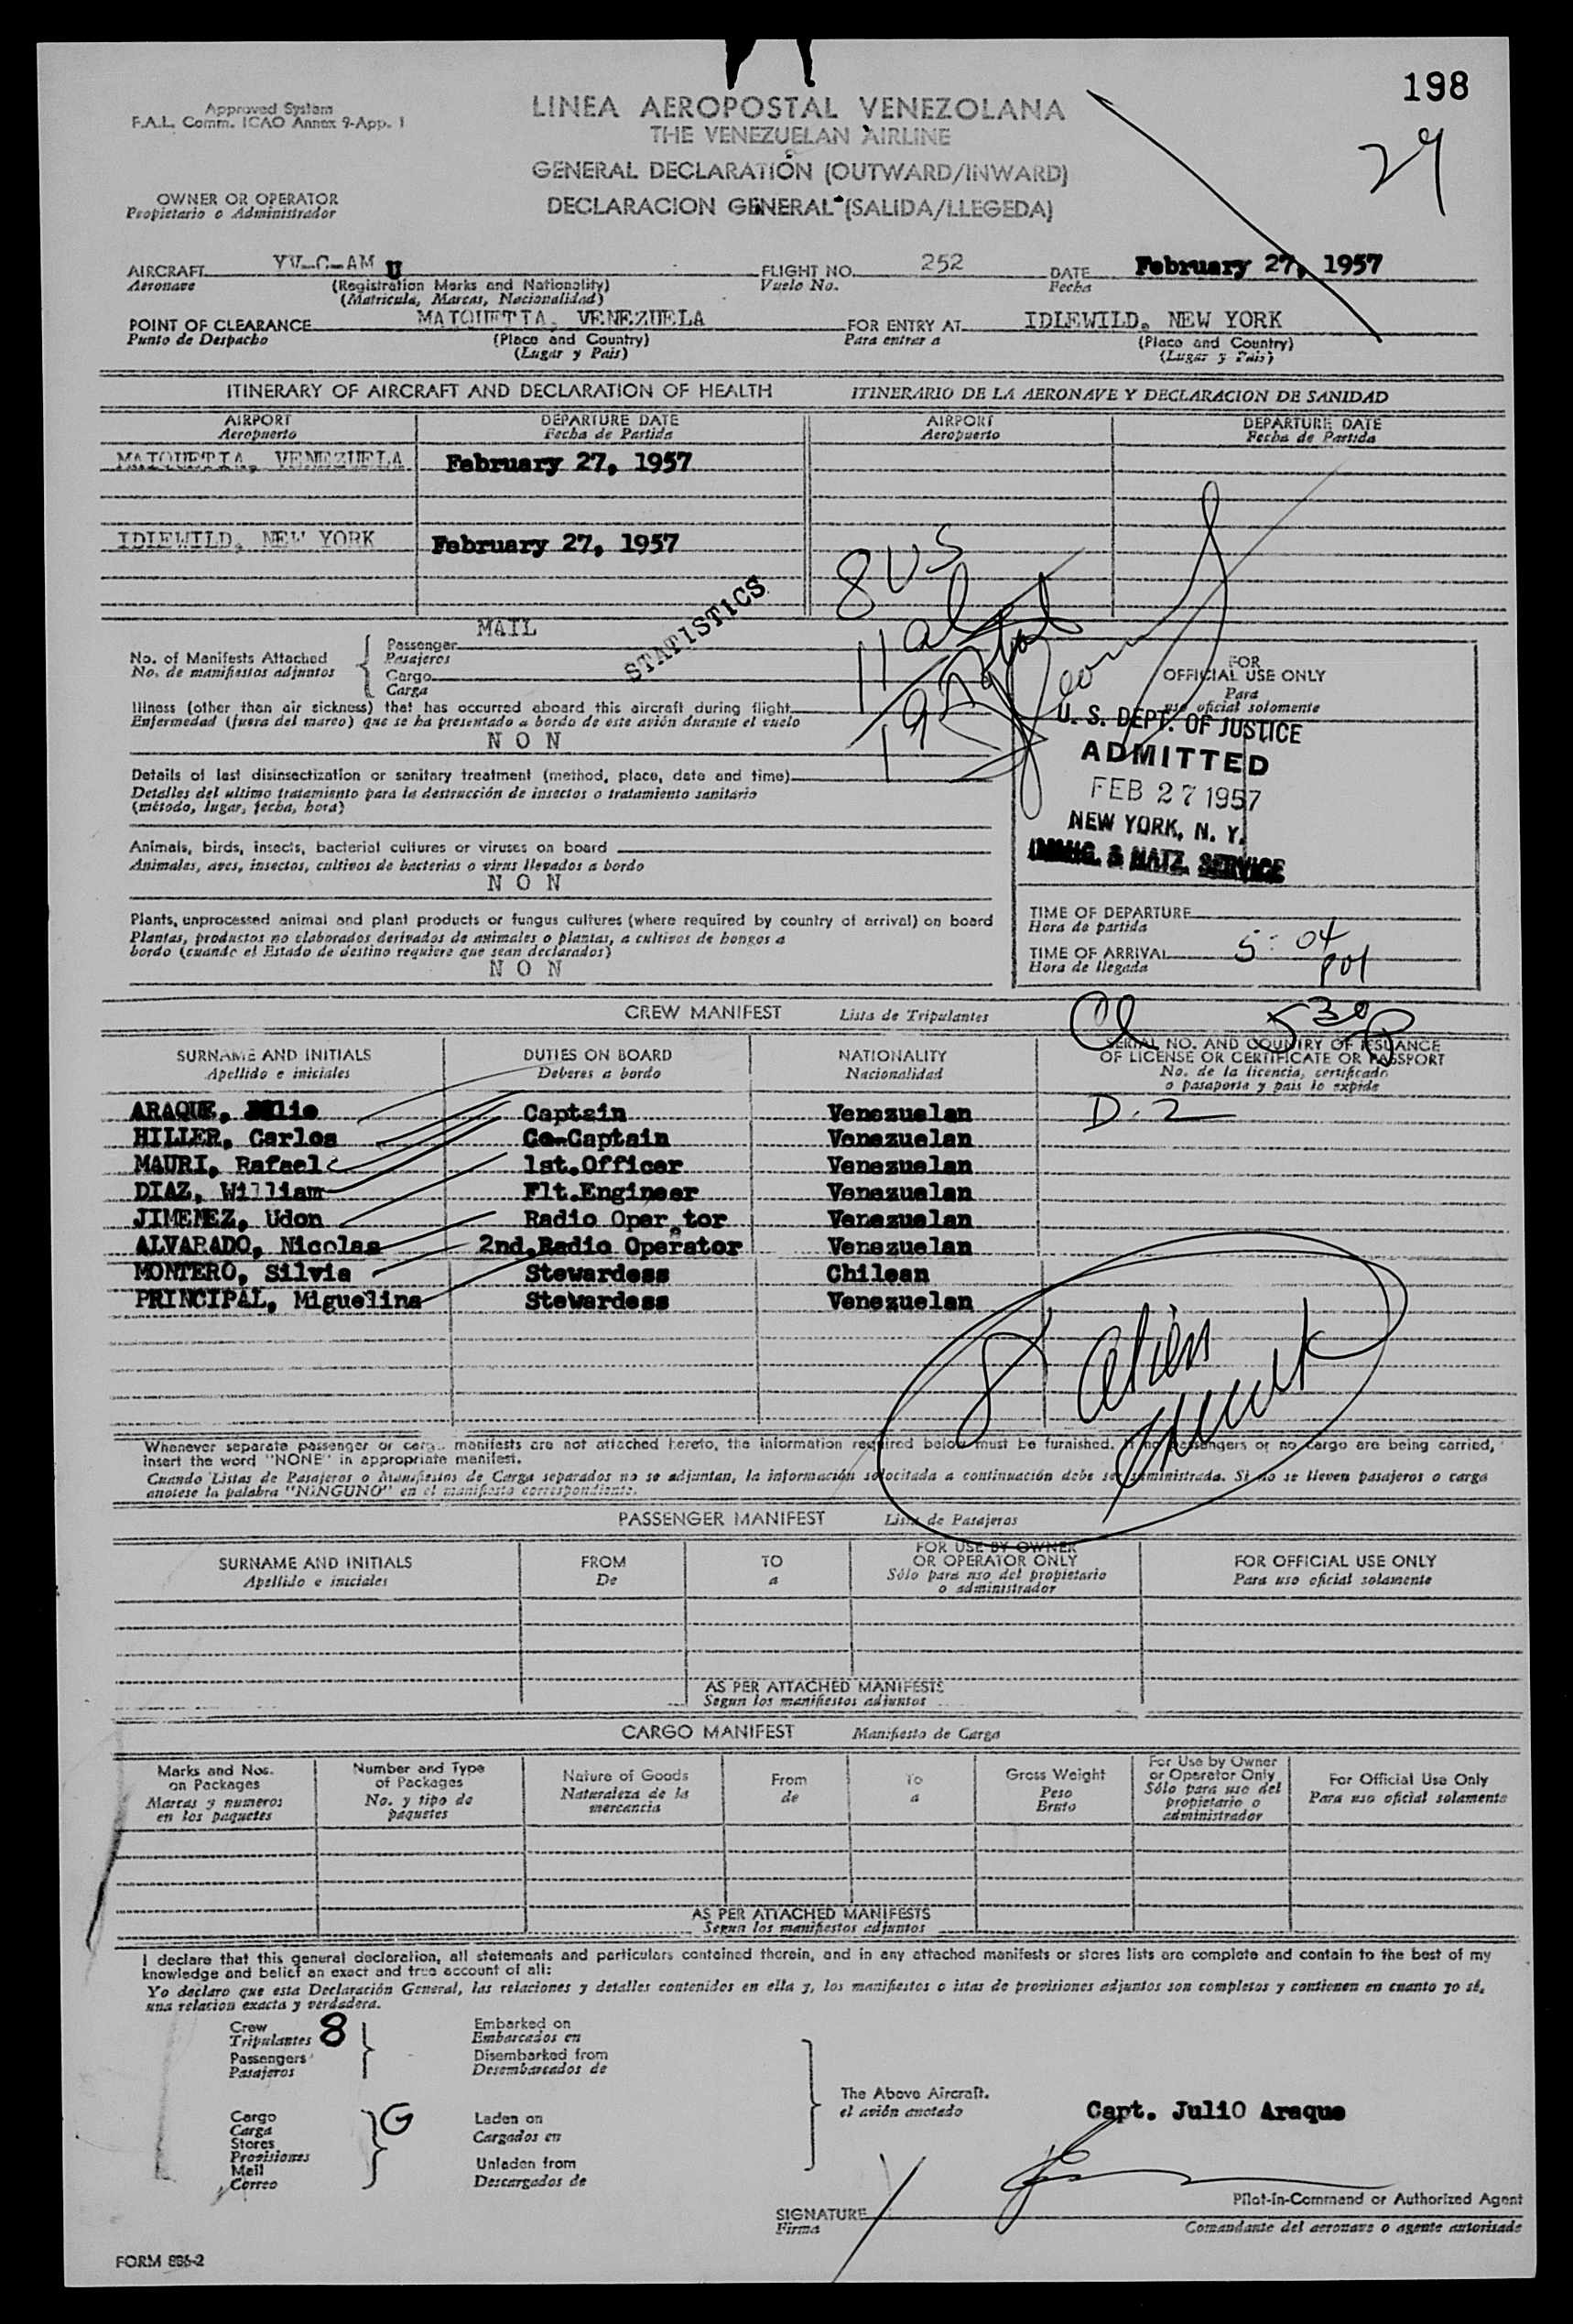 198
29
Approved System
F.A.L. Comm. ICAO Annex 9-App. 1
LINEA AEROPOSTAL VENEZOLANA
THE VENEZUELAN AIRLINE
GENERAL DECLARATION (OUTWARD/INWARD)
DECLARACION GENERAL (SALIDA/LLEGEDA)
OWNER OR OPERATOR
Propietario o Administrador
AIRCRAFT YV-C-AM U FLIGHT NO. 252 DATE February 27, 1957
Aeronave (Registration Marks and Nationality) Vuelo No. Fecha
(Matricula, Marcas, Nacionalidad)
POINT OF CLEARANCE MAIQUETIA, VENEZUELA FOR ENTRY AT IDLEWILD, NEW YORK
Punto de Despacho (Place and Country) Para entrar a (Place and Country)
(Lugar y Pais) (Lugar y Pais)
ITINERARY OF AIRCRAFT AND DECLARATION OF HEALTH ITINERARIO DE LA AERONAVE Y DECLARACION DE SANIDAD
AIRPORT DEPARTURE DATE AIRPORT DEPARTURE DATE
Aeropuerto Fecha de Partida Aeropuerto Fecha de Partida
MAIQUETIA, VENEZUELA February 27, 1957
IDLEWILD, NEW YORK February 27, 1957
8 US
11 al
19
STATISTICS
MAIL
No. of Manifests Attached
No. de manifiestos adjuntos
Passenger
Pasajeros
Cargo
Carga
Illness (other than air sickness) that has occurred aboard this aircraft during flight
Enfermedad (fuera del mareo) que se ha presentado a bordo de este avión durante el vuelo
N O N
Details of last disinsectization or sanitary treatment (method, place, date and time)
Detalles del ultimo tratamiento para la destrucción de insectos o tratamiento sanitario
(método, lugar, fecha, hora)
Animals, birds, insects, bacterial cultures or viruses on board
Animales, aves, insectos, cultivos de bacterias o virus llevados a bordo
N O N
Plants, unprocessed animal and plant products or fungus cultures (where required by country of arrival) on board
Plantas, productos no elaborados derivados de animales o plantas, a cultivos de hongos a
bordo (cuando el Estado de destino requiere que sean declarados)
N O N
FOR
OFFICIAL USE ONLY
Para
uso oficial solomente
U. S. DEPT. OF JUSTICE
ADMITTED
FEB 27 1957
NEW YORK, N. Y.
IMMIG. & NATZ. SERVICE
TIME OF DEPARTURE
Hora de partida
TIME OF ARRIVAL 5:04
Hora de llegada
530
CREW MANIFEST Lista de Tripulantes
SURNAME AND INITIALS DUTIES ON BOARD NATIONALITY SERIAL NO. AND COUNTRY OF ISSUANCE
OF LICENSE OR CERTIFICATE OR PASSPORT
Apellido e iniciales Deberes a bordo Nacionalidad No. de la licencia, certificado
o pasaporte y pais lo expide
ARAQUE, Julio Captain Venezuelan D-2
HILLER, Carlos Co-Captain Venezuelan
MAURI, Rafael Ist.Officer Venezuelan
DIAZ, William Flt.Engineer Venezuelan
JIMENEZ, Udon Radio Operator Venezuelan
ALVARADO, Nicolas 2nd.Radio Operator Venezuelan
MONTERO, Silvia Stewardess Chilean
PRINCIPAL, Miguelina Stewardess Venezuelan
8 alien
Whenever separate passenger or cargo manifests are not attached hereto, the information required below must be furnished. If no passengers or no cargo are being carried,
insert the word "NONE" in appropriate manifest.
Cuando Listas de Pasajeros o Manifiestos de Carga separados no se adjuntan, la información solocitada a continuación debe ser suministrada. Si no se lleven pasajeros o carga
anotese la palabra "NINGUNO" en el manifiesto correspondiente.
PASSENGER MANIFEST Lista de Pasajeros
SURNAME AND INITIALS FROM TO FOR USE BY OWNER
OR OPERATOR ONLY FOR OFFICIAL USE ONLY
Apellido e iniciales De a Sólo para uso del propietario
o administrador Para uso oficial solamente
AS PER ATTACHED MANIFESTS
Segun los manifiestos adjuntos
CARGO MANIFEST Manifiesto de Carga
Marks and Nos.
on Packages
Marcas y numeros
en los paquetes
Number and Type
of Packages
No. y tipo de
paquetes
Nature of Goods
Naturaleza de la
mercancia
From
de
To
a
Gross Weight
Peso
Bruto
For Use by Owner
or Operator Only
Sólo para uso del
propietario o
administrador
For Official Use Only
Para uso oficial solamente
AS PER ATTACHED MANIFESTS
Segun los manifiestos adjuntos
I declare that this general declaration, all statements and particulars contained therein, and in any attached manifests or stores lists are complete and contain to the best of my
knowledge and belief an exact and true account of all:
Yo declaro que esta Declaración General, las relaciones y detalles contenidos en ella y, los manifiestos o istas de provisiones adjuntos son completos y contienen en cuanto yo sé,
una relacion exacta y verdadera.
Crew
Tripulantes 8
Passengers
Pasajeros
Embarked on
Embarcados en
Disembarked from
Desembarcados de
Cargo
Carga
Stores
Provisiones
Mail
Correo
G
Laden on
Cargados en
Unladen from
Descargados de
The Above Aircraft.
el avión anotado
Capt. JuliO Araque
SIGNATURE
Firma
Pilot-in-Command or Authorized Agent
Comandante del aeronave o agente autorisade
FORM 886-2